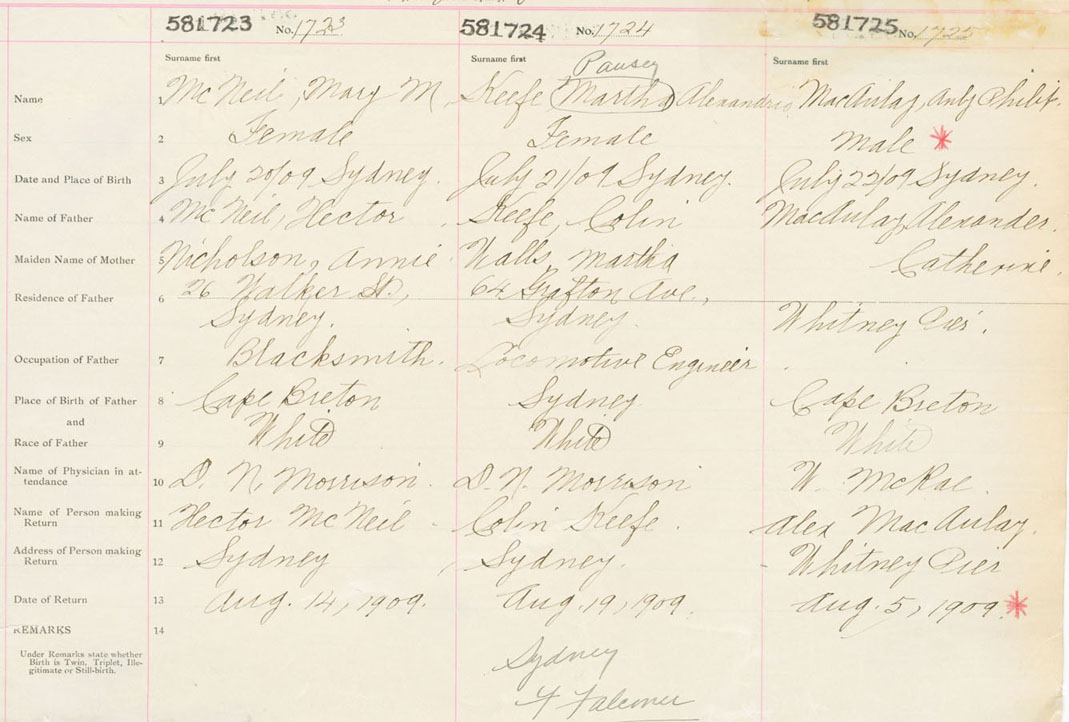 581723 No. 1723 581724 No. 1724 581725 No. 1725
Surname first Surname first Surname first
Pansey
Name 1 McNeil, Mary M. Keefe Martha Alexandria MacAulay, Philip
Sex 2 Female Female Male *
Date and Place of Birth 3 July 20/09 Sydney. July 21/09 Sydney. July 22/09 Sydney.
Name of Father 4 McNeil, Hector Keefe, Colin MacAulay, Alexander.
Maiden Name of Mother 5 Nicholson, Annie Walls, Martha Catherine.
Residence of Father 6 26 Walker St., 64 Grafton Ave.,
Sydney. Sydney. Whitney Pier.
Occupation of Father 7 Blacksmith. Locomotive Engineer
Place of Birth of Father 8 Cape Breton Sydney Cape Breton
and
Race of Father 9 White White White
Name of Physician in at-
tendance 10 D. N. Morrison. D. N. Morrison W. McRae.
Name of Person making
Return 11 Hector McNeil Colin Keefe. Alex MacAulay.
Address of Person making
Return 12 Sydney Sydney. Whitney Pier
Date of Return 13 Aug. 14, 1909. Aug. 19, 1909. Aug. 5, 1909 *
REMARKS 14
Under Remarks state whether
Birth is Twin, Triplet, Ille-
gitimate or Still-birth.
Sydney
F Falconer